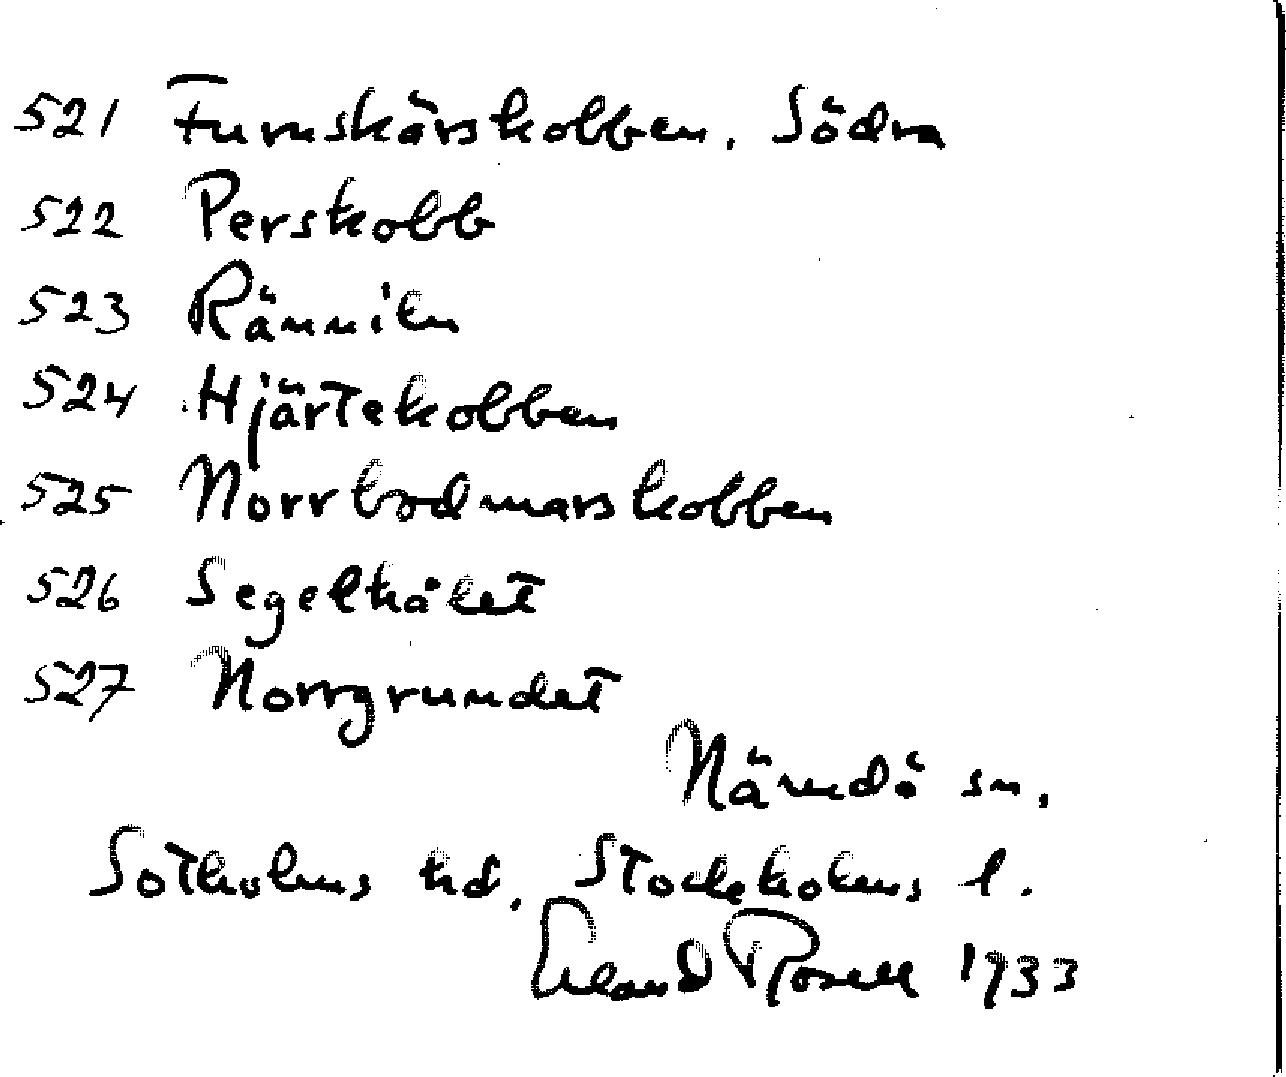 521 Furuskärskobben, Södra
522 Perskobb
523 Ränniln
524 Hjärtekobben
525 Norrbodmarskobben
526 Segelhålet
527 Norrgrundet
Nämdö sn.
Sotholms hd. Stockholms l.
Erland Rosell 1933